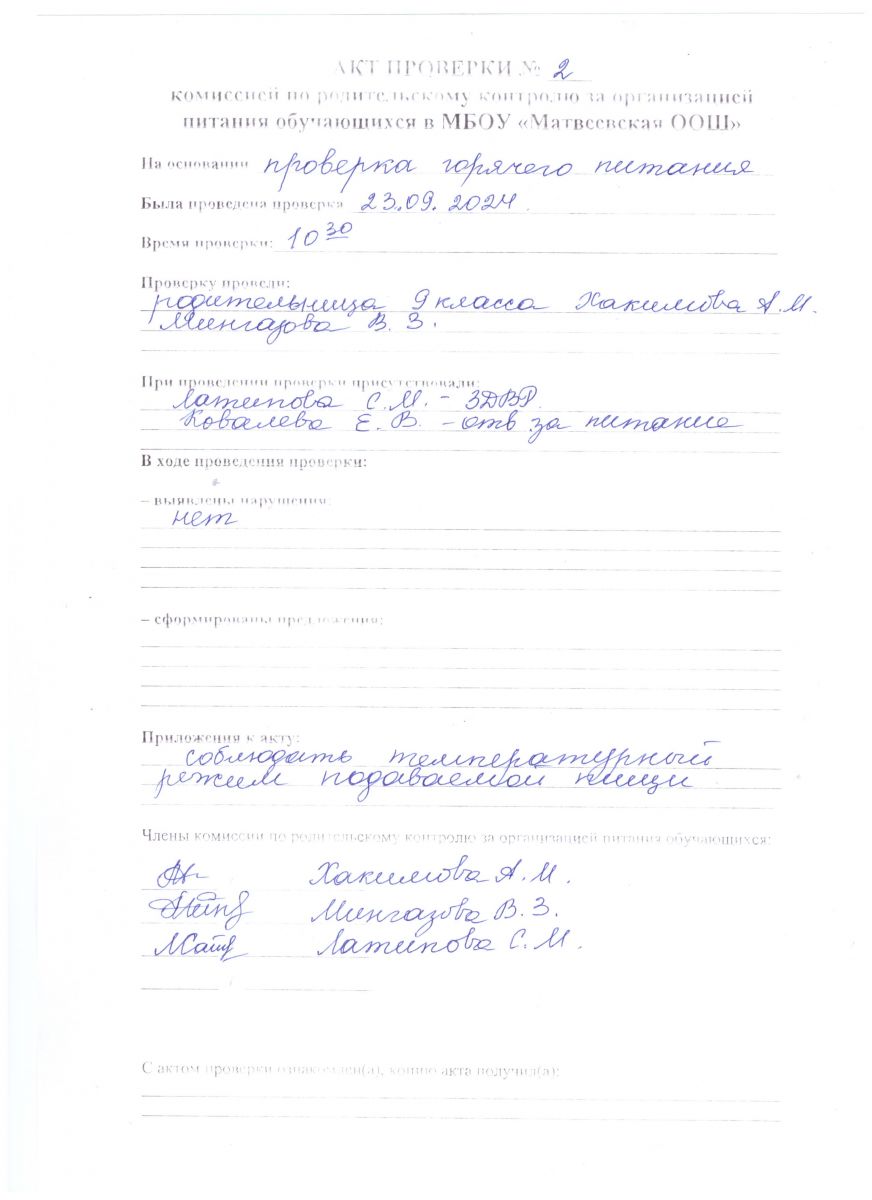 АКТ ПРОВЕРКИ № 2
комиссией по родительскому контролю за организацией
питания обучающихся в МБОУ «Матвеевская ООШ»
На основании проверка горячего питания
Была проведена проверка 23.09.2024
Время проверки: 10 30
Проверку провели:
родительница 9 класса Хакимова А.М.
Мингазова В. З.
При проведении проверки присутствовали:
Латипова С.М. - ЗДВР
Ковалева Е. В. - отв за питание
В ходе проведения проверки:
– выявлены нарушения:
нет
– сформированы предложения:
Приложения к акту:
соблюдать температурный
режим подаваемой пищи
Члены комиссии по родительскому контролю за организацией питания обучающихся:
Хакимова А. М.
Мингазова В. З.
Латипова С. М.
С актом проверки ознакомлен(а), копию акта получил(а):